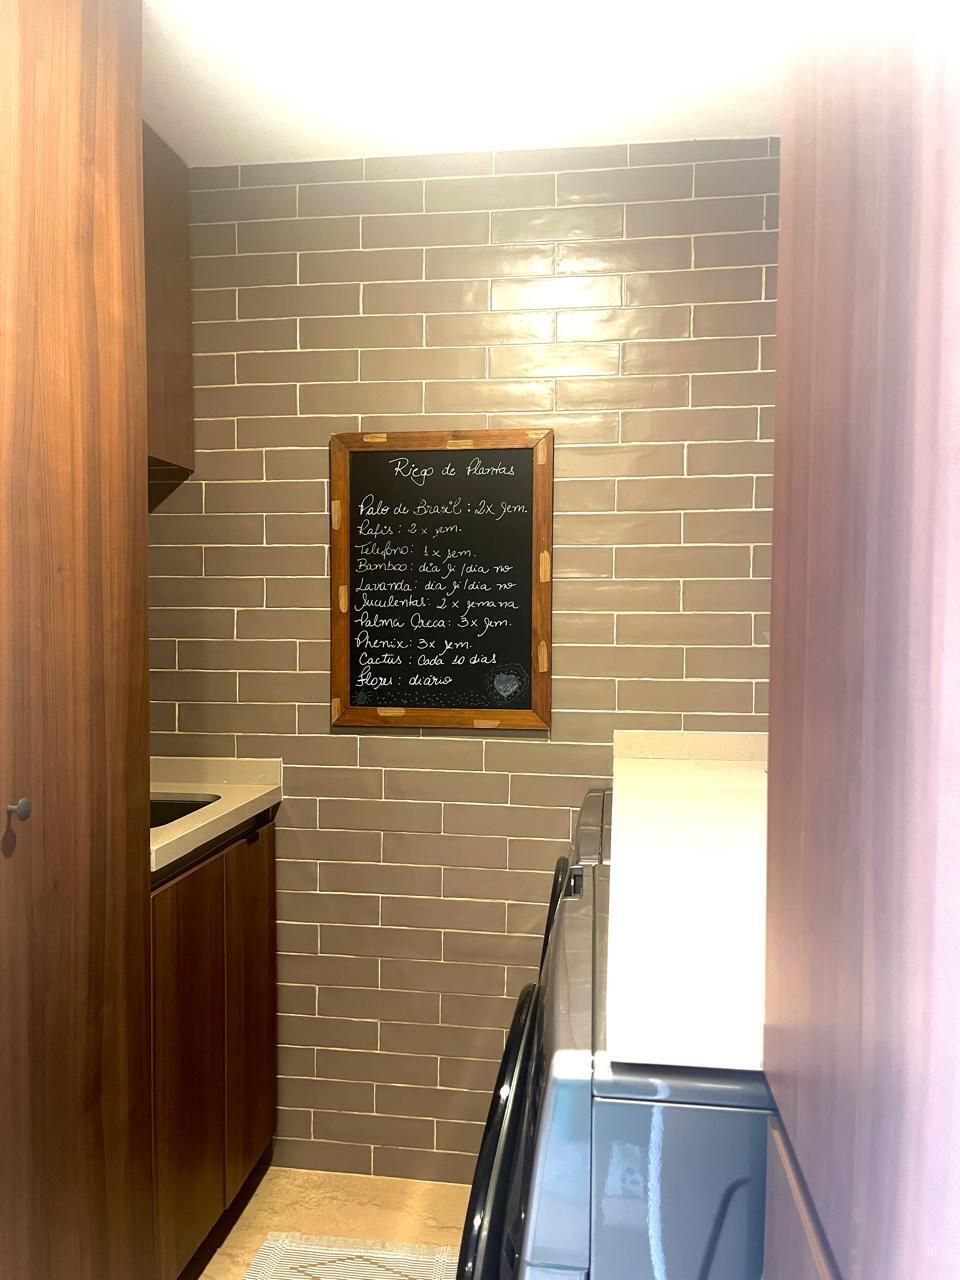 Riego de Plantas
Palo de Brasil : 2x sem.
Rafis : 2 x sem.
Teléfono : 1 x sem.
Bamboo : dia si / dia no
Lavanda : dia si / dia no
Suculentas : 2 x semana
Palma Areca : 3x sem.
Phenix : 3x sem.
Cactus : Cada 10 dias
Flores : diário